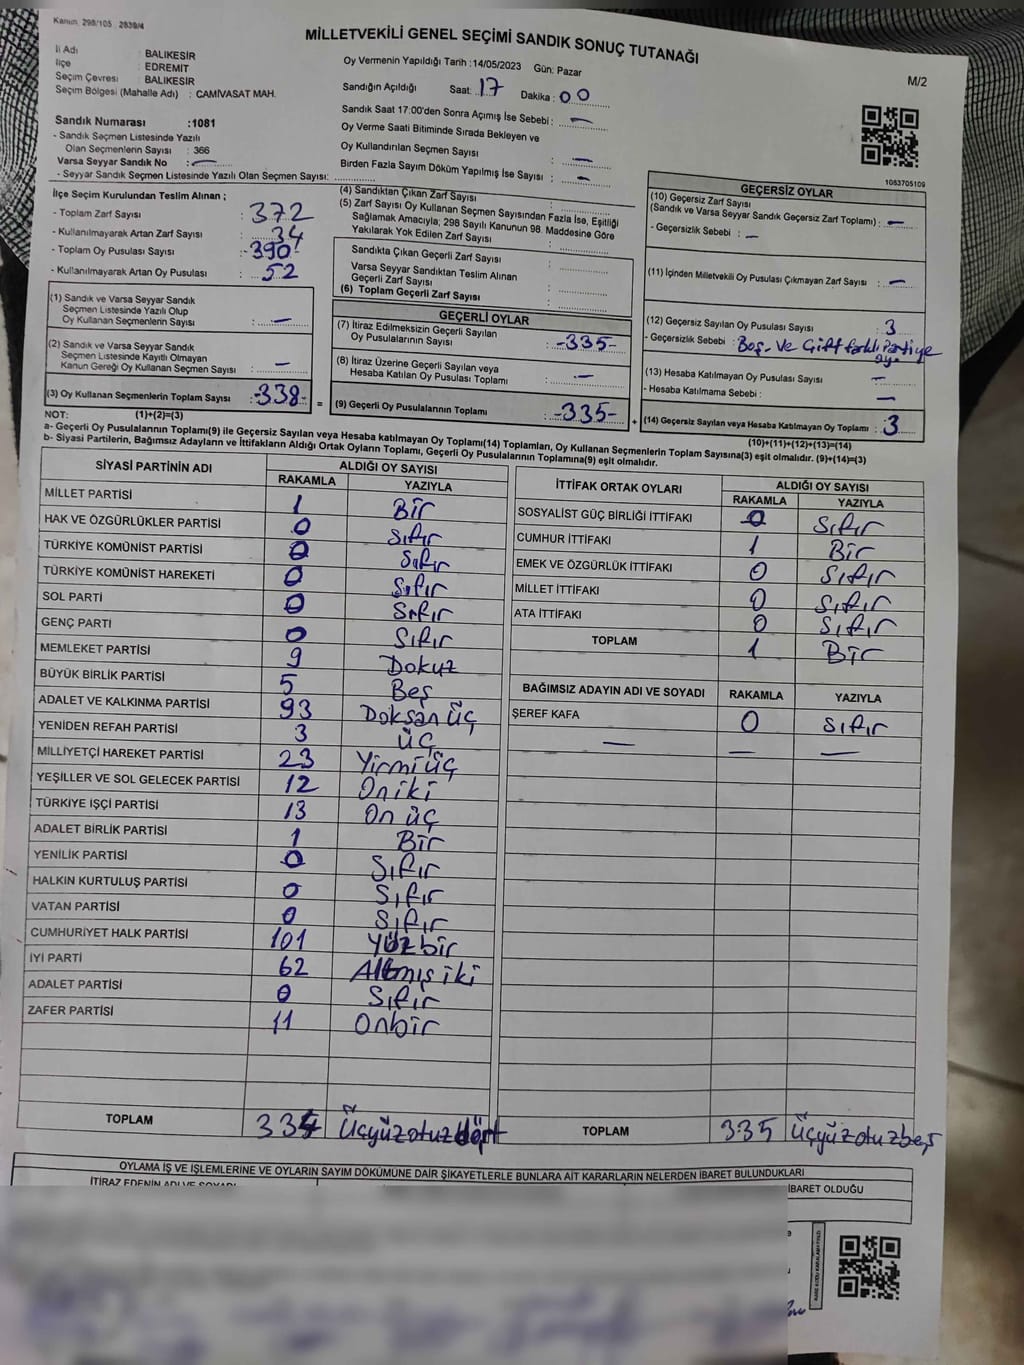 Kanun: 298/105 : 2839/4
MİLLETVEKİLİ GENEL SEÇİMİ SANDIK SONUÇ TUTANAĞI
M/2
İl Adı : BALIKESİR
İlçe : EDREMİT
Seçim Çevresi : BALIKESİR
Seçim Bölgesi (Mahalle Adı) : CAMİVASAT MAH.
Sandık Numarası :1081
- Sandık Seçmen Listesinde Yazılı
Olan Seçmenlerin Sayısı : 366
Varsa Seyyar Sandık No : —
- Seyyar Sandık Seçmen Listesinde Yazılı Olan Seçmen Sayısı:
Oy Vermenin Yapıldığı Tarih :14/05/2023 Gün: Pazar
Sandığın Açıldığı Saat: 17 Dakika : 00
Sandık Saat 17:00'den Sonra Açımış İse Sebebi : —
Oy Verme Saati Bitiminde Sırada Bekleyen ve
Oy Kullandırılan Seçmen Sayısı : —
Birden Fazla Sayım Döküm Yapılmış İse Sayısı : —
1083705109
İlçe Seçim Kurulundan Teslim Alınan ;
- Toplam Zarf Sayısı : 372
- Kullanılmayarak Artan Zarf Sayısı : 34
- Toplam Oy Pusulası Sayısı : -390-
- Kullanılmayarak Artan Oy Pusulası : 52
(1) Sandık ve Varsa Seyyar Sandık
Seçmen Listesinde Yazılı Olup
Oy Kullanan Seçmenlerin Sayısı : —
(2) Sandık ve Varsa Seyyar Sandık
Seçmen Listesinde Kayıtlı Olmayan
Kanun Gereği Oy Kullanan Seçmen Sayısı : —
(3) Oy Kullanan Seçmenlerin Toplam Sayısı : -338-
(4) Sandıktan Çıkan Zarf Sayısı :
(5) Zarf Sayısı Oy Kullanan Seçmen Sayısından Fazla İse, Eşitliği
Sağlamak Amacıyla, 298 Sayılı Kanunun 98. Maddesine Göre
Yakılarak Yok Edilen Zarf Sayısı :
Sandıkta Çıkan Geçerli Zarf Sayısı :
Varsa Seyyar Sandıktan Teslim Alınan
Geçerli Zarf Sayısı :
(6) Toplam Geçerli Zarf Sayısı :
GEÇERLİ OYLAR
(7) İtiraz Edilmeksizin Geçerli Sayılan
Oy Pusulalarının Sayısı : -335-
(8) İtiraz Üzerine Geçerli Sayılan veya
Hesaba Katılan Oy Pusulası Toplamı : —
= (9) Geçerli Oy Pusulalarının Toplamı : -335-
GEÇERSİZ OYLAR
(10) Geçersiz Zarf Sayısı
(Sandık ve Varsa Seyyar Sandık Geçersiz Zarf Toplamı) : —
- Geçersizlik Sebebi : —
(11) İçinden Milletvekili Oy Pusulası Çıkmayan Zarf Sayısı : —
(12) Geçersiz Sayılan Oy Pusulası Sayısı : 3
- Geçersizlik Sebebi : Boş - Ve Çift farklı Partiye
oya
(13) Hesaba Katılmayan Oy Pusulası Sayısı : —
- Hesaba Katılmama Sebebi : —
+ (14) Geçersiz Sayılan veya Hesaba Katılmayan Oy Toplamı : 3
NOT: (1)+(2)=(3)
(10)+(11)+(12)+(13)=(14)
a- Geçerli Oy Pusulalarının Toplamı(9) ile Geçersiz Sayılan veya Hesaba katılmayan Oy Toplamı(14) Toplamları, Oy Kullanan Seçmenlerin Toplam Sayısına(3) eşit olmalıdır. (9)+(14)=(3)
b- Siyasi Partilerin, Bağımsız Adayların ve İttifakların Aldığı Ortak Oyların Toplamı, Geçerli Oy Pusulalarının Toplamına(9) eşit olmalıdır.
SİYASİ PARTİNİN ADI ALDIĞI OY SAYISI
RAKAMLA YAZIYLA
MİLLET PARTİSİ 1 Bir
HAK VE ÖZGÜRLÜKLER PARTİSİ 0 Sıfır
TÜRKİYE KOMÜNİST PARTİSİ 0 Sıfır
TÜRKİYE KOMÜNİST HAREKETİ 0 Sıfır
SOL PARTİ 0 Sıfır
GENÇ PARTİ 0 Sıfır
MEMLEKET PARTİSİ 9 Dokuz
BÜYÜK BİRLİK PARTİSİ 5 Beş
ADALET VE KALKINMA PARTİSİ 93 Doksan üç
YENİDEN REFAH PARTİSİ 3 üç
MİLLİYETÇİ HAREKET PARTİSİ 23 Yirmi üç
YEŞİLLER VE SOL GELECEK PARTİSİ 12 On iki
TÜRKİYE İŞÇİ PARTİSİ 13 On üç
ADALET BİRLİK PARTİSİ 1 Bir
YENİLİK PARTİSİ 0 Sıfır
HALKIN KURTULUŞ PARTİSİ 0 Sıfır
VATAN PARTİSİ 0 Sıfır
CUMHURİYET HALK PARTİSİ 101 Yüzbir
İYİ PARTİ 62 Altmış iki
ADALET PARTİSİ 0 Sıfır
ZAFER PARTİSİ 11 Onbir
TOPLAM 334 Üçyüzotuzdört
İTTİFAK ORTAK OYLARI ALDIĞI OY SAYISI
RAKAMLA YAZIYLA
SOSYALİST GÜÇ BİRLİĞİ İTTİFAKI 0 Sıfır
CUMHUR İTTİFAKI 1 Bir
EMEK VE ÖZGÜRLÜK İTTİFAKI 0 Sıfır
MİLLET İTTİFAKI 0 Sıfır
ATA İTTİFAKI 0 Sıfır
TOPLAM 1 Bir
BAĞIMSIZ ADAYIN ADI VE SOYADI RAKAMLA YAZIYLA
ŞEREF KAFA 0 Sıfır
— — —
TOPLAM 335 Üçyüzotuzbeş
OYLAMA İŞ VE İŞLEMLERİNE VE OYLARIN SAYIM DÖKÜMÜNE DAİR ŞİKAYETLERLE BUNLARA AİT KARARLARIN NELERDEN İBARET BULUNDUKLARI
İTİRAZ EDENİN ADI VE SOYADI
İBARET OLDUĞU